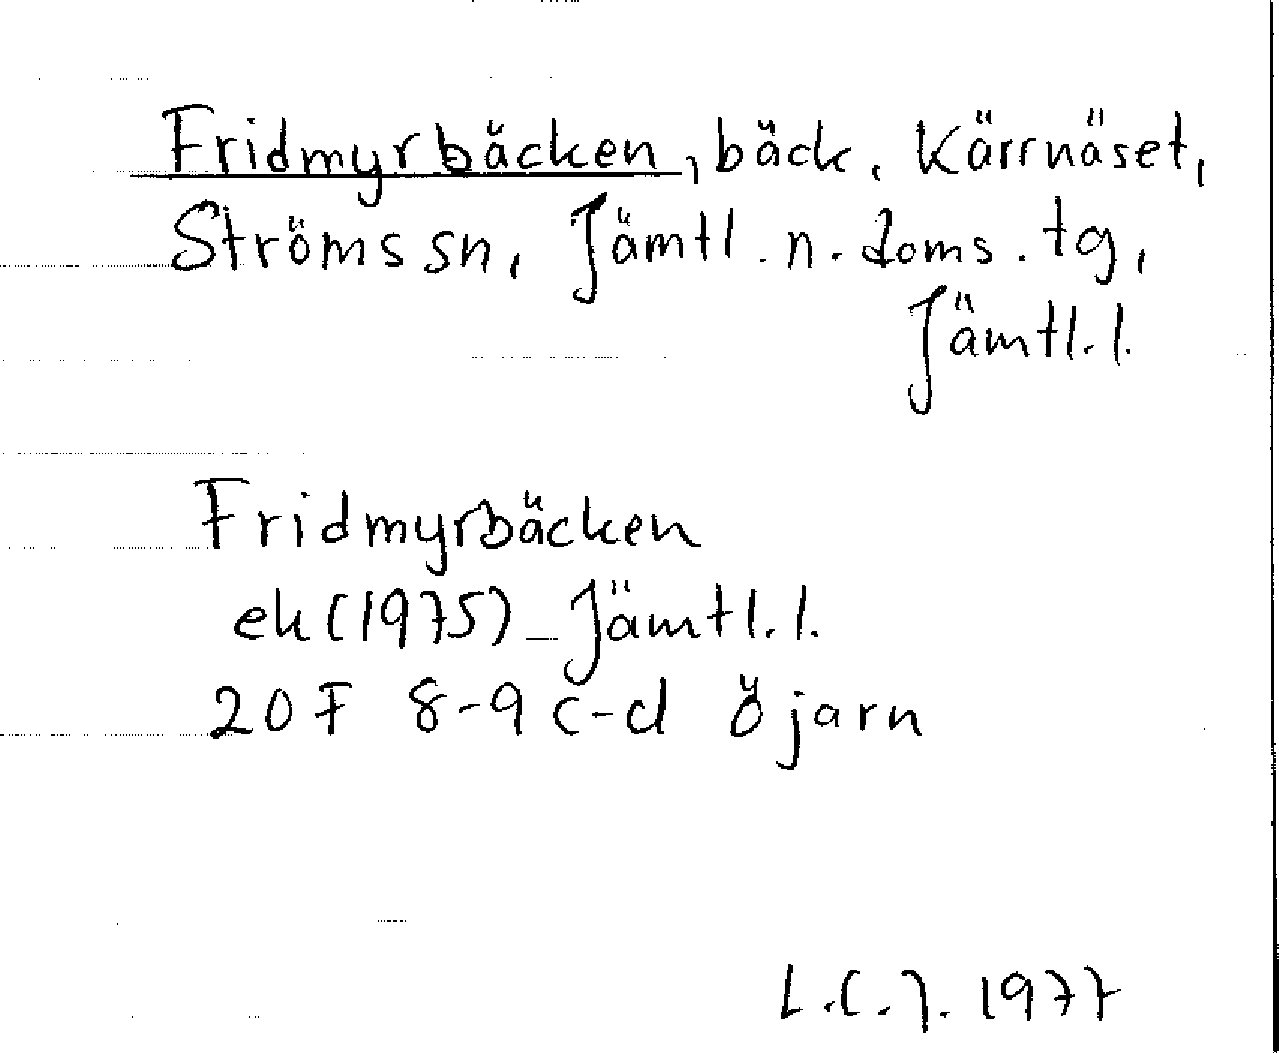 Fridmyrbäcken, bäck, Kärrnäset,
Ströms sn, Jämtl. n. doms. tg,
Jämtl. l.
Fridmyrbäcken
ek (1975) Jämtl. l.
20 F 8-9 c-d Öjarn
L.C.J. 1977